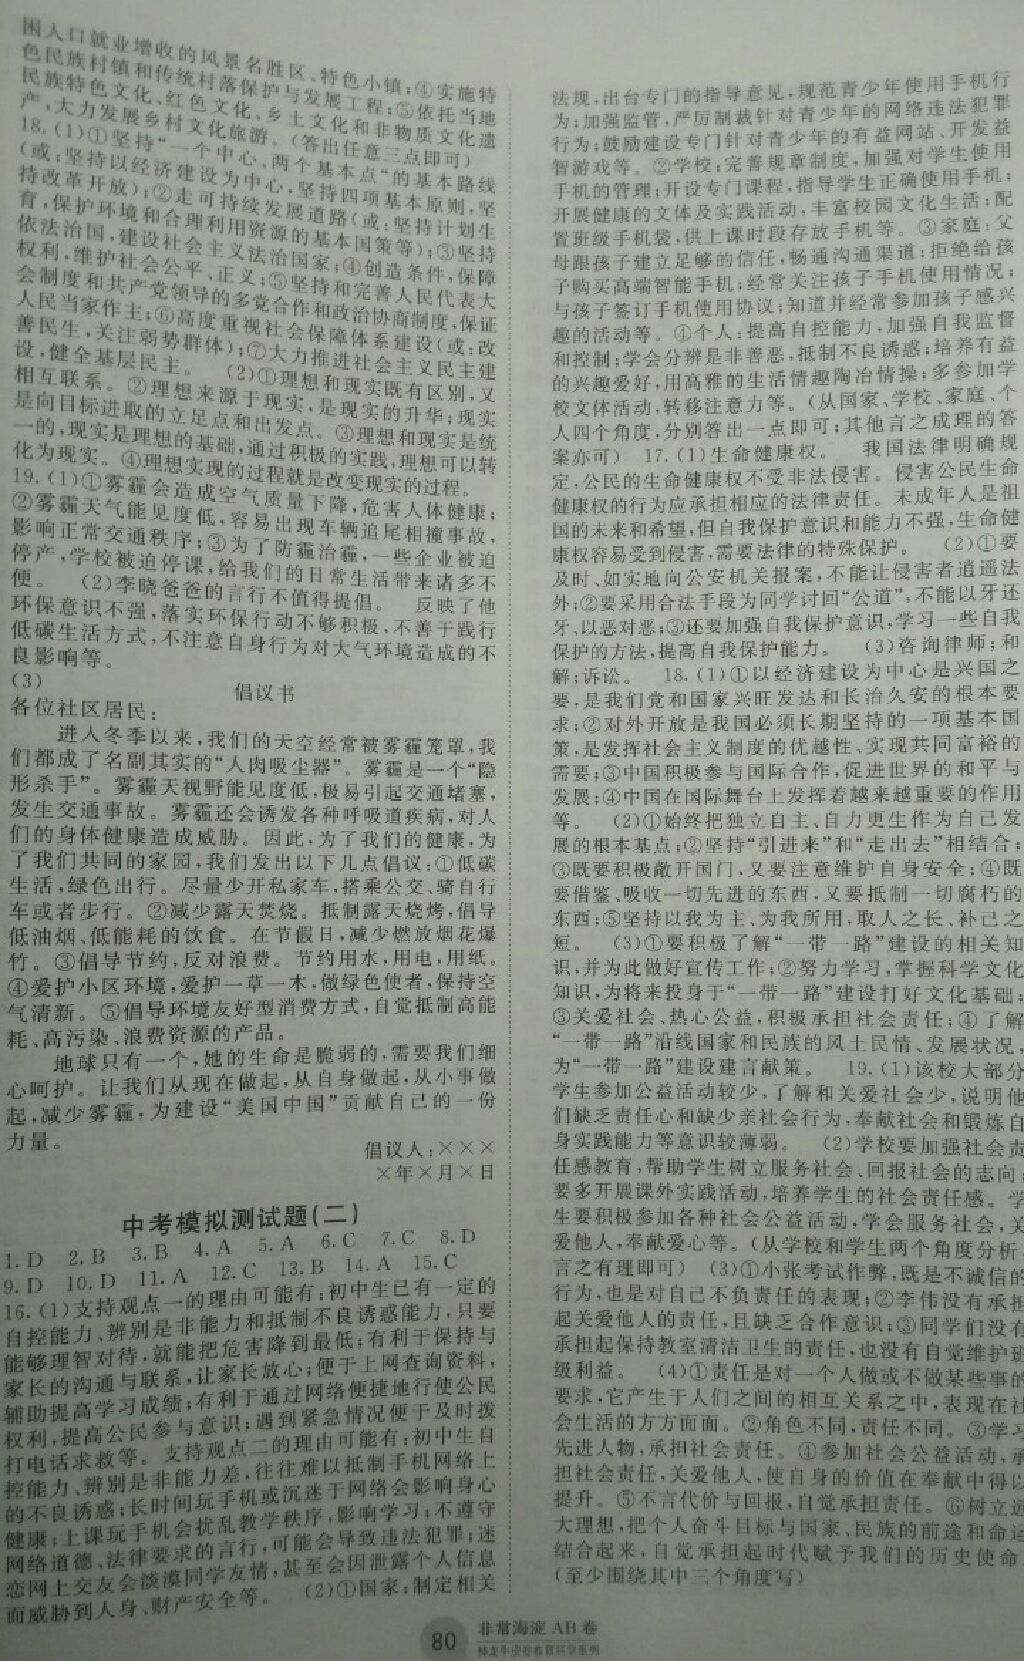 困人口就业增收的风景名胜区、特色小镇;④实施特
色民族村镇和传统村落保护与发展工程;⑤依托当地
民族特色文化、红色文化、乡土文化和非物质文化遗
产,大力发展乡村文化旅游。(答出任意三点即可)
18.(1)①坚持“一个中心、两个基本点”的基本路线
(或:坚持以经济建设为中心,坚持四项基本原则,坚
持改革开放);②走可持续发展道路(或:坚持计划生
育,保护环境和合理利用资源的基本国策等);③坚持
依法治国,建设社会主义法治国家;④创造条件,保障
权利,维护社会公平、正义;⑤坚持和完善人民代表大
会制度和共产党领导的多党合作和政治协商制度,保证
人民当家作主;⑥高度重视社会保障体系建设(或:改
善民生,关注弱势群体);⑦大力推进社会主义民主建
设,健全基层民主。 (2)①理想和现实既有区别,又
相互联系。②理想来源于现实,是现实的升华;现实
是向目标进取的立足点和出发点。③理想和现实是统
一的,现实是理想的基础,通过积极的实践,理想可以转
化为现实。④理想实现的过程就是改变现实的过程。
19.(1)①雾霾会造成空气质量下降,危害人体健康;
②雾霾天气能见度低,容易出现车辆追尾相撞事故,
影响正常交通秩序;③为了防霾治霾,一些企业被迫
停产,学校被迫停课,给我们的日常生活带来诸多不
便。 (2)李晓爸爸的言行不值得提倡。 反映了他
环保意识不强,落实环保行动不够积极,不善于践行
低碳生活方式,不注意自身行为对大气环境造成的不
良影响等。
(3)
倡议书
各位社区居民:
进入冬季以来,我们的天空经常被雾霾笼罩,我
们都成了名副其实的“人肉吸尘器”。雾霾是一个“隐
形杀手”。雾霾天视野能见度低,极易引起交通堵塞,
发生交通事故。雾霾还会诱发各种呼吸道疾病,对人
们的身体健康造成威胁。因此,为了我们的健康,为
了我们共同的家园,我们发出以下几点倡议:①低碳
生活,绿色出行。尽量少开私家车,搭乘公交、骑自行
车或者步行。②减少露天焚烧。抵制露天烧烤,倡导
低油烟、低能耗的饮食。在节假日,减少燃放烟花爆
竹。③倡导节约,反对浪费。节约用水,用电,用纸。
④爱护小区环境,爱护一草一木,做绿色使者,保持空
气清新。⑤倡导环境友好型消费方式,自觉抵制高能
耗、高污染、浪费资源的产品。
地球只有一个,她的生命是脆弱的,需要我们细
心呵护。让我们从现在做起,从自身做起,从小事做
起,减少雾霾,为建设“美国中国”贡献自己的一份
力量。
倡议人:×××
×年×月×日
中考模拟测试题(二)
1.D 2.B 3.B 4.A 5.A 6.C 7.C 8.D
9.D 10.D 11.A 12.C 13.B 14.A 15.C
16.(1)支持观点一的理由可能有:初中生已有一定的
自控能力、辨别是非能力和抵制不良诱惑能力,只要
能够理智对待,就能把危害降到最低;有利于保持与
家长的沟通与联系,让家长放心;便于上网查询资料,
辅助提高学习成绩;有利于通过网络便捷地行使公民
权利,提高公民参与意识;遇到紧急情况便于及时拨
打电话求救等。支持观点二的理由可能有:初中生自
控能力、辨别是非能力差,往往难以抵制手机网络上
的不良诱惑;长时间玩手机或沉迷于网络会影响身心
健康;上课玩手机会扰乱教学秩序,影响学习;不遵守
网络道德、法律要求的言行,可能会导致违法犯罪;迷
恋网上交友会淡漠同学友情,甚至会因泄露个人信息
而威胁到人身、财产安全等。 (2)①国家:制定相关
法规,出台专门的指导意见,规范青少年使用手机行
为;加强监管,严厉制裁针对青少年的网络违法犯罪
行为;鼓励建设专门针对青少年的有益网站、开发益
智游戏等。②学校:完善规章制度,加强对学生使用
手机的管理;开设专门课程,指导学生正确使用手机;
开展健康的文体及实践活动,丰富校园文化生活;配
置班级手机袋,供上课时段存放手机等。③家庭:父
母跟孩子建立足够的信任,畅通沟通渠道;拒绝给孩
子购买高端智能手机;经常关注孩子手机使用情况;
与孩子签订手机使用协议;知道并经常参加孩子感兴
趣的活动等。④个人:提高自控能力,加强自我监督
和控制;学会分辨是非善恶,抵制不良诱惑;培养有益
的兴趣爱好,用高雅的生活情趣陶冶情操;多参加学
校文体活动,转移注意力等。(从国家、学校、家庭、个
人四个角度,分别答出一点即可;其他言之成理的答
案亦可) 17.(1)生命健康权。 我国法律明确规
定,公民的生命健康权不受非法侵害。侵害公民生命
健康权的行为应承担相应的法律责任。未成年人是祖
国的未来和希望,但自我保护意识和能力不强,生命健
康权容易受到侵害,需要法律的特殊保护。 (2)①要
及时、如实地向公安机关报案,不能让侵害者逍遥法
外;②要采用合法手段为同学讨回“公道”,不能以牙还
牙,以恶对恶;③还要加强自我保护意识,学习一些自我
保护的方法,提高自我保护能力。 (3)咨询律师;和
解;诉讼。 18.(1)①以经济建设为中心是兴国之
要,是我们党和国家兴旺发达和长治久安的根本要
求;②对外开放是我国必须长期坚持的一项基本国
策,是发挥社会主义制度的优越性、实现共同富裕的
需要;③中国积极参与国际合作,促进世界的和平与
发展;④中国在国际舞台上发挥着越来越重要的作用
等。 (2)①始终把独立自主、自力更生作为自己发
展的根本基点;②坚持“引进来”和“走出去”相结合;
③既要积极敞开国门,又要注意维护自身安全;④既
要借鉴、吸收一切先进的东西,又要抵制一切腐朽的
东西;⑤坚持以我为主、为我所用,取人之长、补己之
短。 (3)①要积极了解“一带一路”建设的相关知
识,并为此做好宣传工作;②努力学习,掌握科学文化
知识,为将来投身于“一带一路”建设打好文化基础;
③关爱社会、热心公益,积极承担社会责任;④了解
“一带一路”沿线国家和民族的风土民情、发展状况,
为“一带一路”建设建言献策。 19.(1)该校大部分
学生参加公益活动较少,了解和关爱社会少,说明他
们缺乏责任心和缺少亲社会行为,奉献社会和锻炼自
身实践能力等意识较薄弱。 (2)学校要加强社会责
任感教育,帮助学生树立服务社会、回报社会的志向;
要多开展课外实践活动,培养学生的社会责任感。学
生要积极参加各种社会公益活动,学会服务社会,关
爱他人,奉献爱心等。(从学校和学生两个角度分析,
言之有理即可) (3)①小张考试作弊,既是不诚信的
行为,也是对自己不负责任的表现;②李伟没有承担
起关爱他人的责任,且缺乏合作意识;③同学们没有
承担起保持教室清洁卫生的责任,也没有自觉维护班
级利益。 (4)①责任是对一个人做或不做某些事的
要求,它产生于人们之间的相互关系之中,表现在社
会生活的方方面面。②角色不同,责任不同。③学习
先进人物,承担社会责任。④参加社会公益活动,承
担社会责任,关爱他人,使自身的价值在奉献中得以
提升。⑤不言代价与回报,自觉承担责任。⑥树立远
大理想,把个人奋斗目标与国家、民族的前途和命运
结合起来,自觉承担起时代赋予我们的历史使命
(至少围绕其中三个角度写)
80
非常海淀 AB 卷